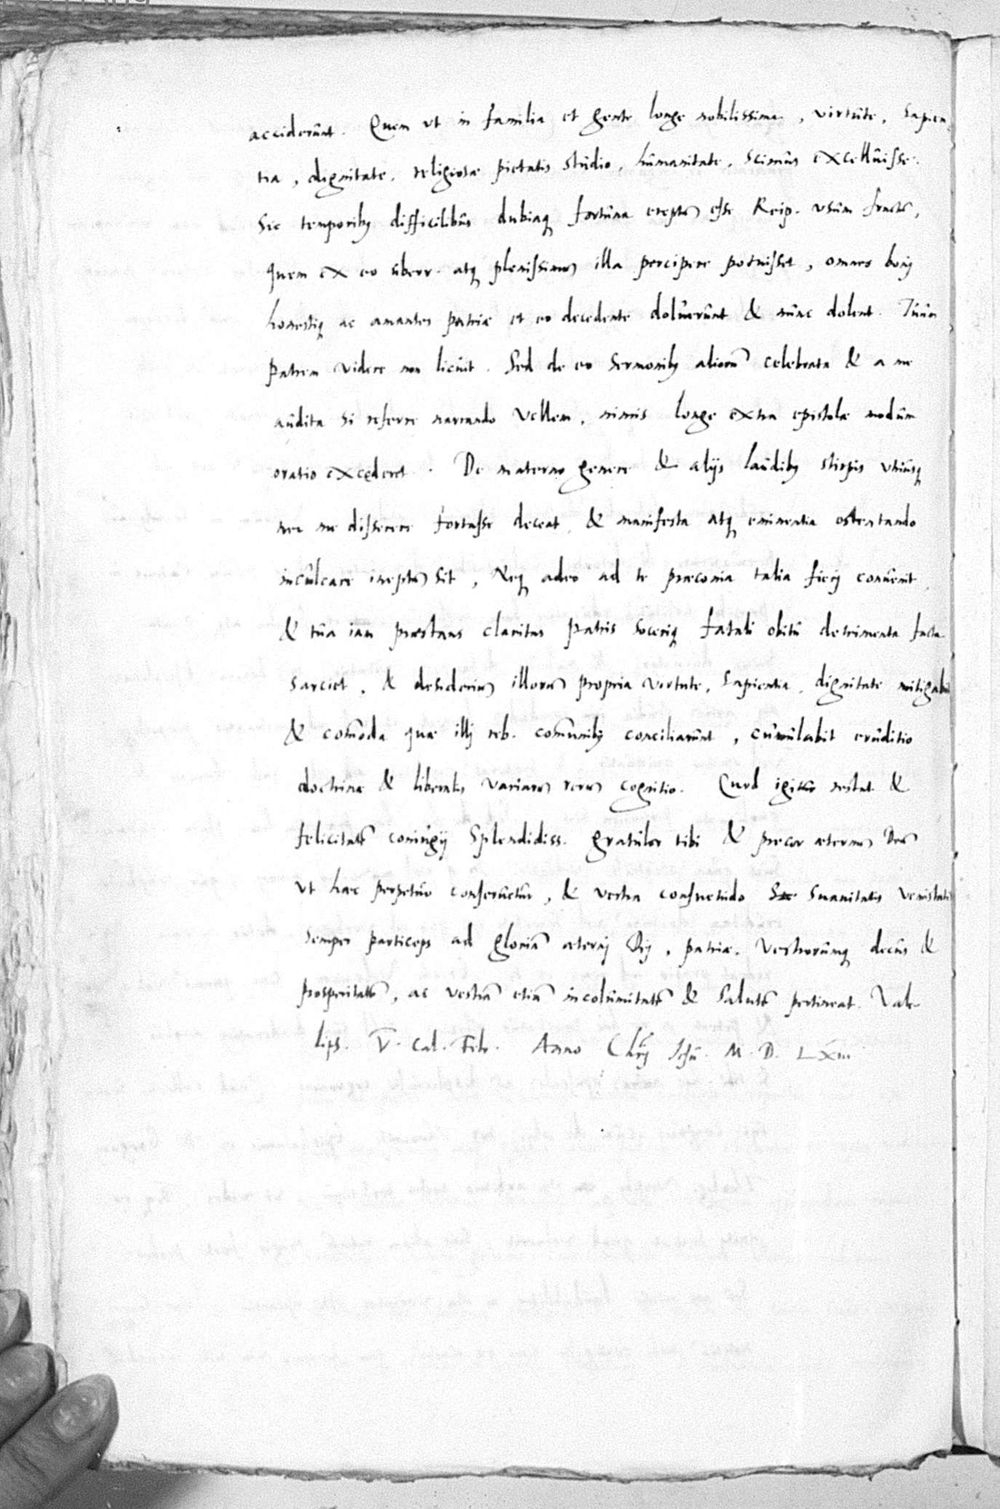 acciderunt. Quem ut in familia et gente longe nobilissima, virtute, sapien
tia, dignitate, religiosæ pietatis studio, humanitate, scimus excelluisse.
Sic temporib9 difficilibus dubiaq fortuna ereptũ esse Reip. usum fructũ,
quem ex eo uberr. atq plenissimũ illa percipere potuisset, omnes bonj
honestiq ac amantes patriæ et eo decedente doluerunt & nunc dolent. Tuum
patrem videre non licuit. Sed de eo sermonib9 aliorũ celebrata & a me
audita si referre narrando vellem, nimis longe extra epistolæ modum
oratio excederet. De materno genere & alijs laudib9 stirpis utriusq
nec me disserere fortasse deceat, & manifesta atq eminentia ostentando
inculcare ineptũ sit, Neq adeo ad te præconia talia fierj conuenit,
& tua iam præstans claritas patris soceriq fatali obitu detrimenta facta
sarciet, & desideriũ illorũ propria virtute, sapientia, dignitate mitigabit
& com̃oda quæ illj reb. com̃unib9 conciliarunt, cumulabit eruditio
doctrinæ & liberalis variarũ rerũ cognitio. Quod igitur restat &
felicitatẽ coniugij splendidiss. gratulor tibi & precor æternũ Deũ
ut hæc perpetuo conseruetur, & vestra consuetudo suauitatis venustatis
semper particeps ad gloriã æternj Dej, patriæ, vestrorumq decus &
prosperitatẽ, ac vestrã etiã incolumitatẽ & salutẽ pertineat. Vale
lips. V. Cal. Feb. Anno Chrj Jesu. M. D. LXiii